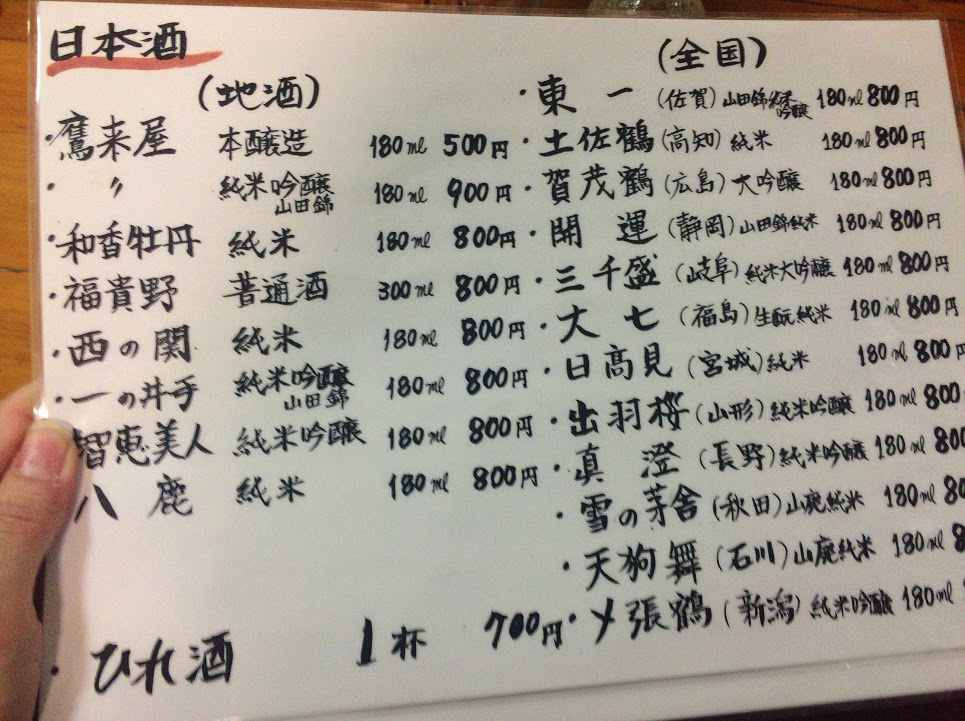 日本酒
(地酒)
・鷹来屋 本醸造 180ml 500円
・ 〃 純米吟醸 山田錦 180ml 900円
・和香牡丹 純米 180ml 800円
・福貴野 普通酒 300ml 800円
・西の関 純米 180ml 800円
・一の井手 純米吟醸 山田錦 180ml 800円
智恵美人 純米吟醸 180ml 800円
八鹿 純米 180ml 800円
・ひれ酒 1杯 700円
(全国)
・東一 (佐賀) 山田錦純米吟醸 180ml 800円
・土佐鶴 (高知) 純米 180ml 800円
・賀茂鶴 (広島) 大吟醸 180ml 800円
・開運 (静岡) 山田錦純米 180ml 800円
・三千盛 (岐阜) 純米大吟醸 180ml 800円
・大七 (福島) 生酛純米 180ml 800円
・日高見 (宮城) 純米 180ml 800円
・出羽桜 (山形) 純米吟醸 180ml 800
・真澄 (長野) 純米吟醸 180ml 800
・雪の茅舎 (秋田) 山廃純米 180ml 80
・天狗舞 (石川) 山廃純米 180ml 8
・〆張鶴 (新潟) 純米吟醸 180ml